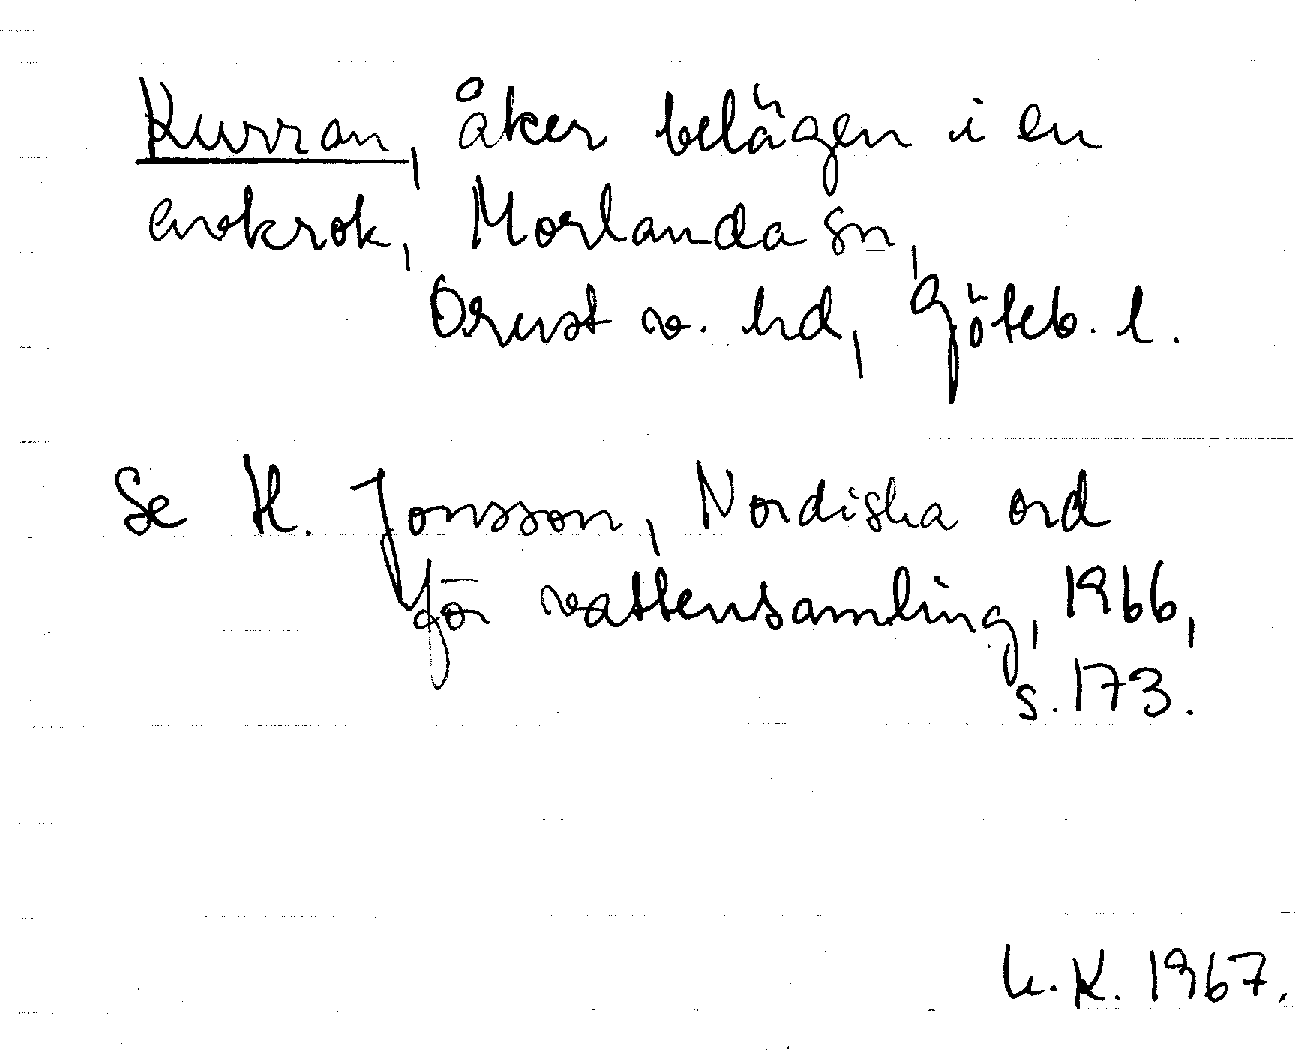 Kurran, åker belägen i en
åvokrok, Morlanda sn,
Orust v. hd, Göteb. l.
Se H. Jonsson, Nordiska ord
för vattensamling, 1966,
s. 173.
K. 1967.